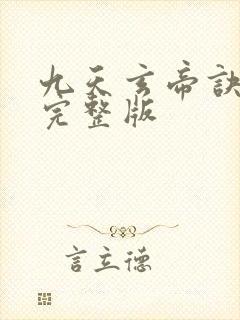 九天玄帝訣
完整版
言立德